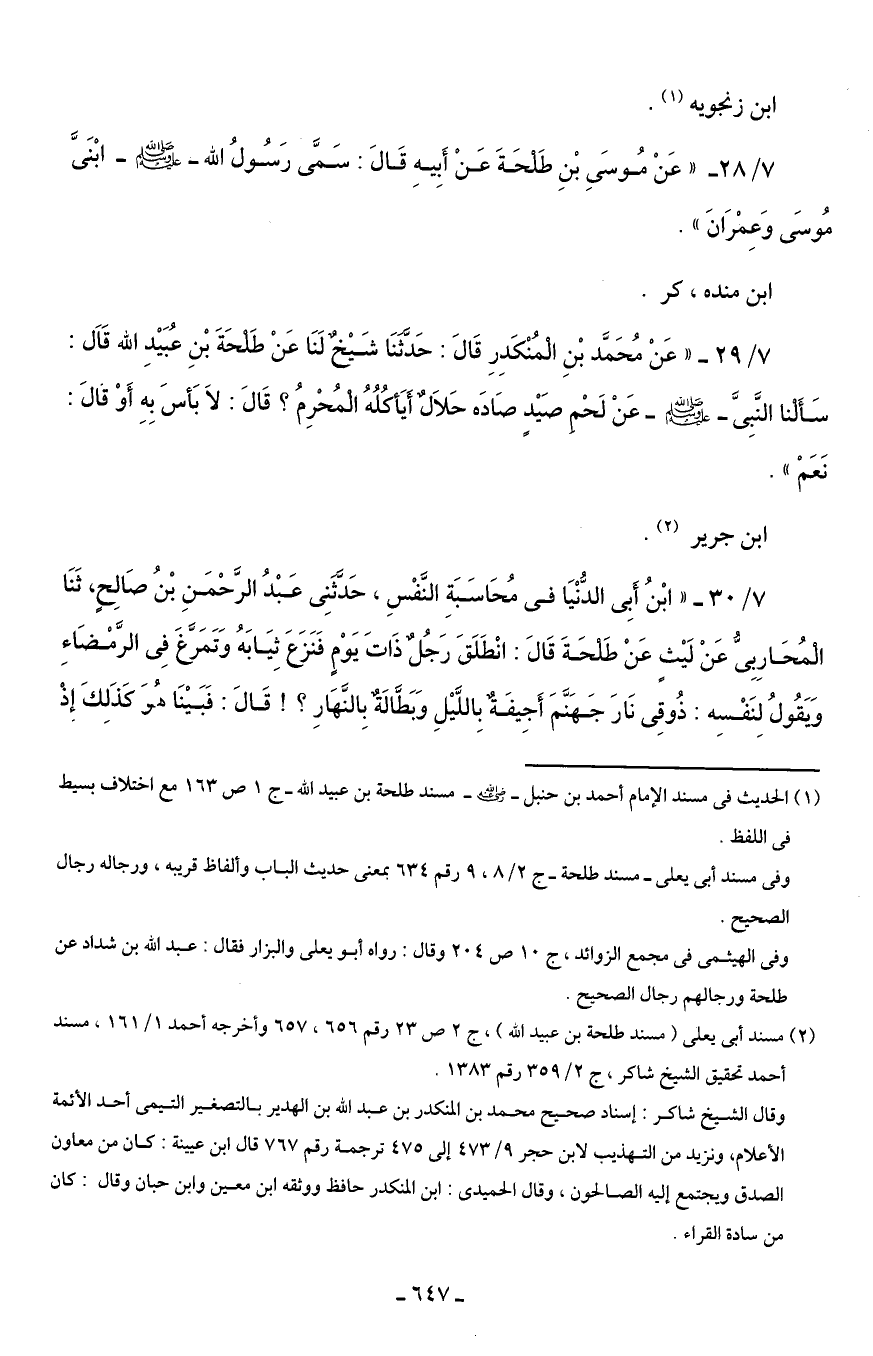 ابن زنجويه (١) .
٢٨/٧ـ « عَنْ مُوسَى بْنِ طَلْحَةَ عَنْ أَبِيهِ قَالَ : سَمَّى رَسُولُ الله ـ ﷺ ـ ابْنَىَّ
مُوسَى وَعِمْرَانَ » .
ابن منده ، كر .
٢٩/٧ ـ « عَنْ مُحَمَّد بْنِ الْمُنْكَدِرِ قَالَ : حَدَّثَنَا شَيْخٌ لَنَا عَنْ طَلْحَةَ بْنِ عُبَيْدِ الله قَالَ :
سَأَلْنَا النَّبِىَّ ـ ﷺ ـ عَنْ لَحْمِ صَيْدٍ صَادَه حَلاَلٌ أَيَأكُلُهُ الْمُحْرِمُ ؟ قَالَ : لاَ بَأسَ بِهِ أَوْ قَالَ :
نَعَمْ » .
ابن جرير (٢) .
٣٠/٧ ـ « ابْنُ أَبِى الدُّنْيَا فِى مُحَاسَبَةِ النَّفْسِ ، حَدَّثَنِى عَبْدُ الرَّحْمَنِ بْنُ صَالِحٍ، ثَنَا
الْمُحَارِبِىُّ عَنْ لَيْثٍ عَنْ طَلْحَةَ قَالَ : انْطَلَقَ رَجُلٌ ذَاتَ يَوْمٍ فَنَزَعَ ثِيَابَهُ وَتَمَرَّغَ فِى الرَّمْضَاءِ
وَيَقُولُ لِنَفْسِهِ : ذُوقِى نَارَ جَهَنَّمَ أَجِيفَةٌ بِاللَّيْلِ وَبَطَّالَةٌ بِالنَّهَارِ ؟ ! قَالَ : فَبَيْنَا هُوَ كَذَلِكَ إِذْ
(١) الحديث فى مسند الإمام أحمد بن حنبل ـ رضي الله عنه ـ مسند طلحة بن عبيد الله ـ ج ١ ص ١٦٣ مع اختلاف بسيط
فى اللفظ .
وفى مسند أبى يعلى ـ مسند طلحة ـ ج ٨/٢ ، ٩ رقم ٦٣٤ بمعنى حديث الباب وألفاظ قريبه ، ورجاله رجال
الصحيح .
وفى الهيثمى فى مجمع الزوائد ، ج ١٠ ص ٢٠٤ وقال : رواه أبو يعلى والبزار فقال : عبد الله بن شداد عن
طلحة ورجالهم رجال الصحيح .
(٢) مسند أبى يعلى ( مسند طلحة بن عبيد الله ) ، ج ٢ ص ٢٣ رقم ٦٥٦ ، ٦٥٧ وأخرجه أحمد ١/ ١٦١ ، مسند
أحمد تحقيق الشيخ شاكر ، ج ٢/ ٣٥٩ رقم ١٣٨٣ .
وقال الشيخ شاكر : إسناد صحيح محمد بن المنكدر بن عبد الله بن الهدير بالتصغير التيمى أحد الأئمة
الأعلام، ونزيد من التهذيب لابن حجر ٩/ ٤٧٣ إلى ٤٧٥ ترجمة رقم ٧٦٧ قال ابن عيينة : كان من معاون
الصدق ويجتمع إليه الصالحون ، وقال الحميدى : ابن المنكدر حافظ ووثقه ابن معين وابن حبان وقال : كان
من سادة القراء .
ـ ٦٤٧ ـ